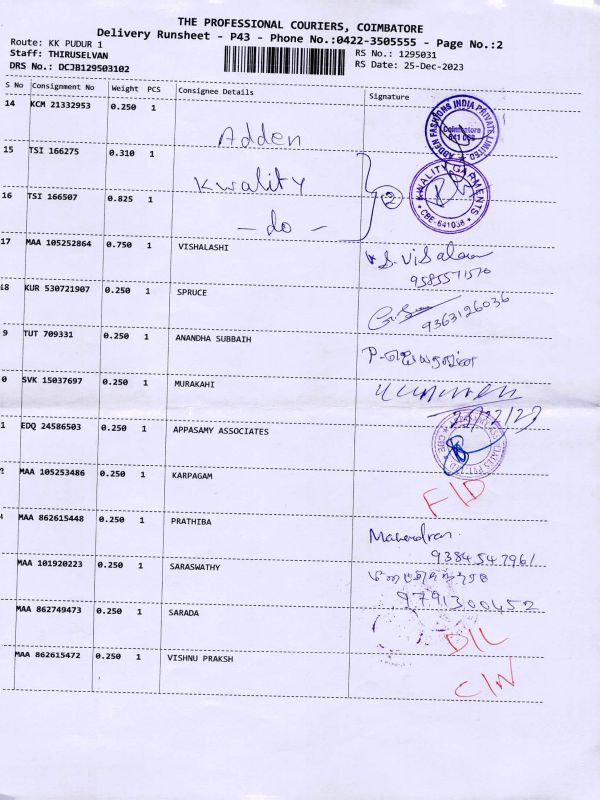 THE PROFESSIONAL COURIERS, COIMBATORE
Delivery Runsheet - P43 - Phone No.:0422-3505555 - Page No.:2
Route: KK PUDUR 1
RS No.: 1295031
Staff: THIRUSELVAN
RS Date: 25-Dec-2023
DRS No.: DCJB129503102
S No Consignment No Weight PCS Consignee Details Signature
14 KCM 21332953 0.250 1 Adden
ADDEN FASHIONS INDIA PRIVATE LIMITED
Coimbatore
641 038
15 TSI 166275 0.310 1 Kwality
KWALITY GARMENTS
CBE-641038
16 TSI 166507 0.825 1 - do - 2
17 MAA 105252864 0.750 1 VISHALASHI
9585571576
18 KUR 530721907 0.250 1 SPRUCE
9363126036
9 TUT 709331 0.250 1 ANANDHA SUBBAIH
0 SVK 15037697 0.250 1 MURAKAHI
1 EDQ 24586503 0.250 1 APPASAMY ASSOCIATES
2 MAA 105253486 0.250 1 KARPAGAM F/D
MAA 862615448 0.250 1 PRATHIBA Mahendran
9384547961
MAA 101920223 0.250 1 SARASWATHY
9791300452
MAA 862749473 0.250 1 SARADA D/L
MAA 862615472 0.250 1 VISHNU PRAKSH C/N